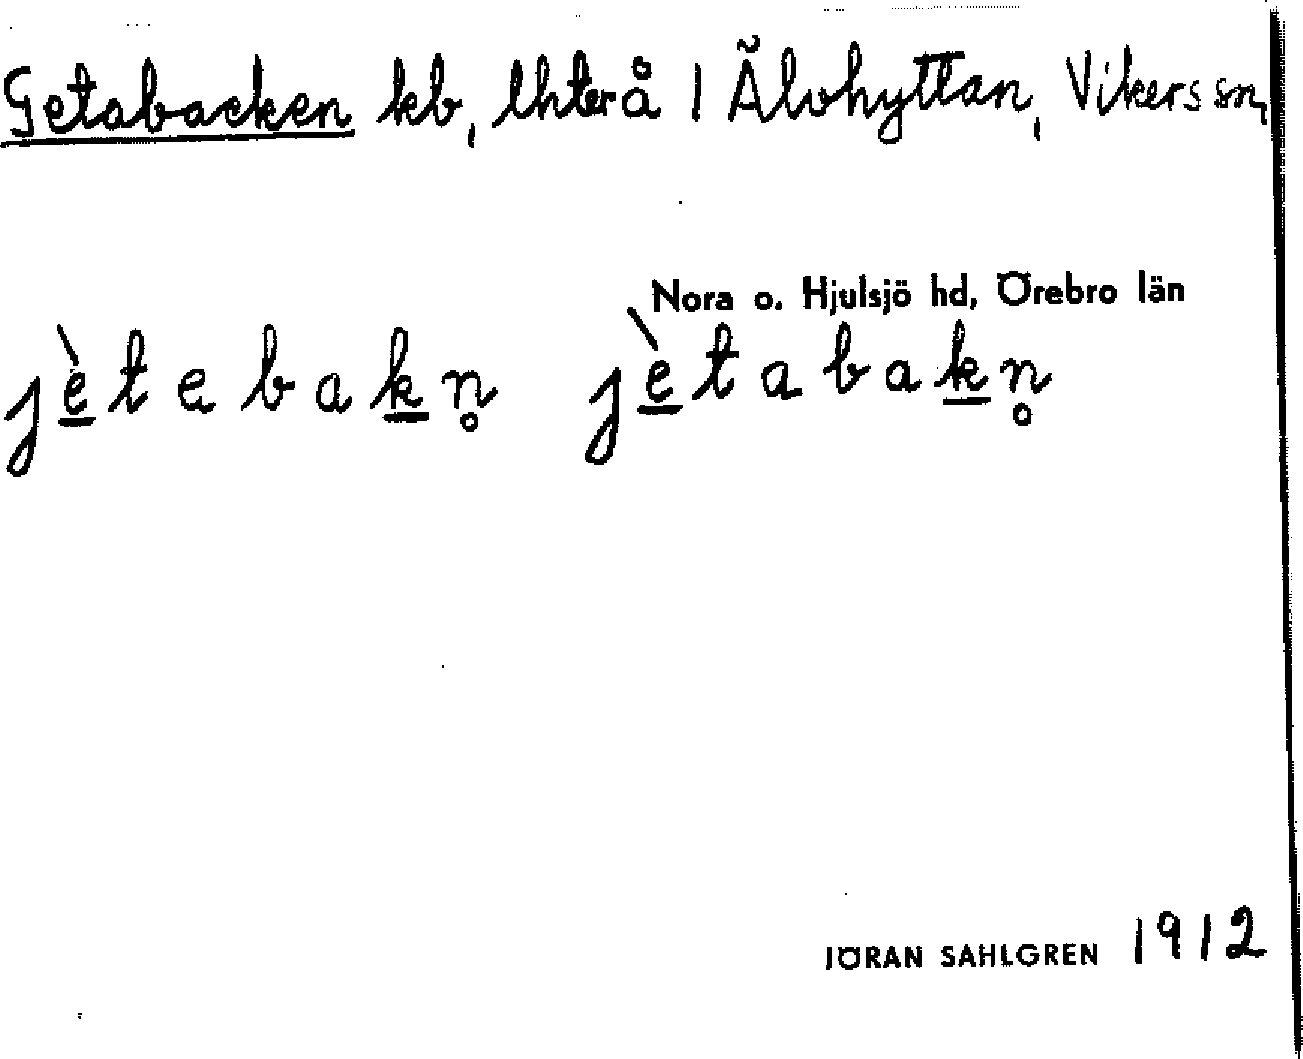 Getabacken kb, Uhterå 1 Älvhyttan, Vikers sn,
Nora o. Hjulsjö hd, Örebro län
jètebakn̥ jètabakn̥
JÖRAN SAHLGREN 1912